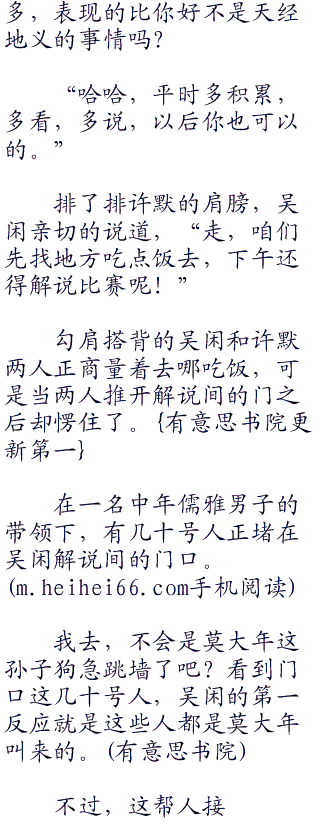 多，表现的比你好不是天经
地义的事情吗？
“哈哈，平时多积累，
多看，多说，以后你也可以
的。”
排了排许默的肩膀，吴
闲亲切的说道，“走，咱们
先找地方吃点饭去，下午还
得解说比赛呢！”
勾肩搭背的吴闲和许默
两人正商量着去哪吃饭，可
是当两人推开解说间的门之
后却愣住了。{有意思书院更
新第一}
在一名中年儒雅男子的
带领下，有几十号人正堵在
吴闲解说间的门口。
(m.heihei66.com手机阅读)
我去，不会是莫大年这
孙子狗急跳墙了吧？看到门
口这几十号人，吴闲的第一
反应就是这些人都是莫大年
叫来的。(有意思书院)
不过，这帮人接